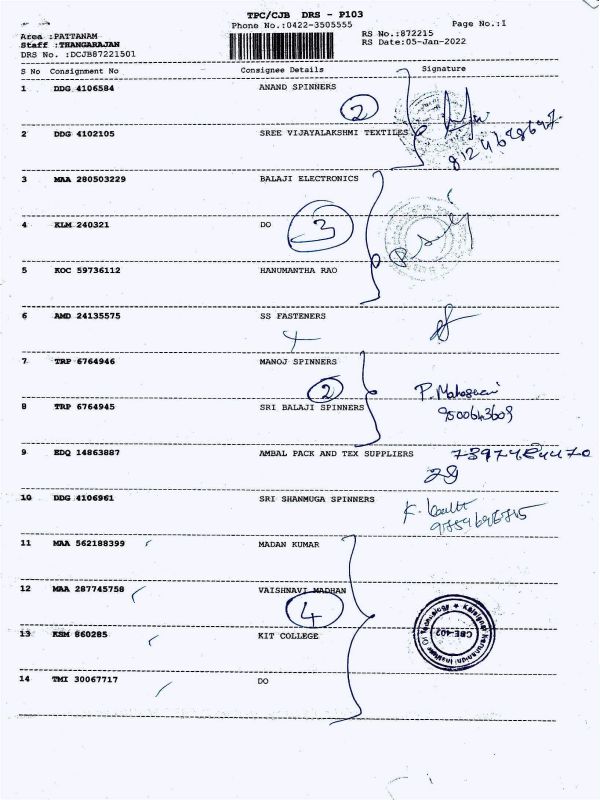 TPC/CJB DRS - P103
Phone No.:0422-3505555
Page No.:1
Area :PATTANAM
RS No.:872215
Staff :THANGARAJAN
RS Date:05-Jan-2022
DRS No. :DCJB87221501
S No Consignment No Consignee Details Signature
1 DDG 4106584 ANAND SPINNERS
2
2 DDG 4102105 SREE VIJAYALAKSHMI TEXTILES
3 MAA 280503229 BALAJI ELECTRONICS
4 KLM 240321 DO
3
5 KOC 59736112 HANUMANTHA RAO
6 AMD 24135575 SS FASTENERS
7 TRP 6764946 MANOJ SPINNERS
2
8 TRP 6764945 SRI BALAJI SPINNERS
9500643609
9 EDQ 14863887 AMBAL PACK AND TEX SUPPLIERS
10 DDG 4106961 SRI SHANMUGA SPINNERS
11 MAA 562188399 MADAN KUMAR
12 MAA 287745758 VAISHNAVI MADHAN
4
13 KSM 860285 KIT COLLEGE
CBE-402
14 TMI 30067717 DO